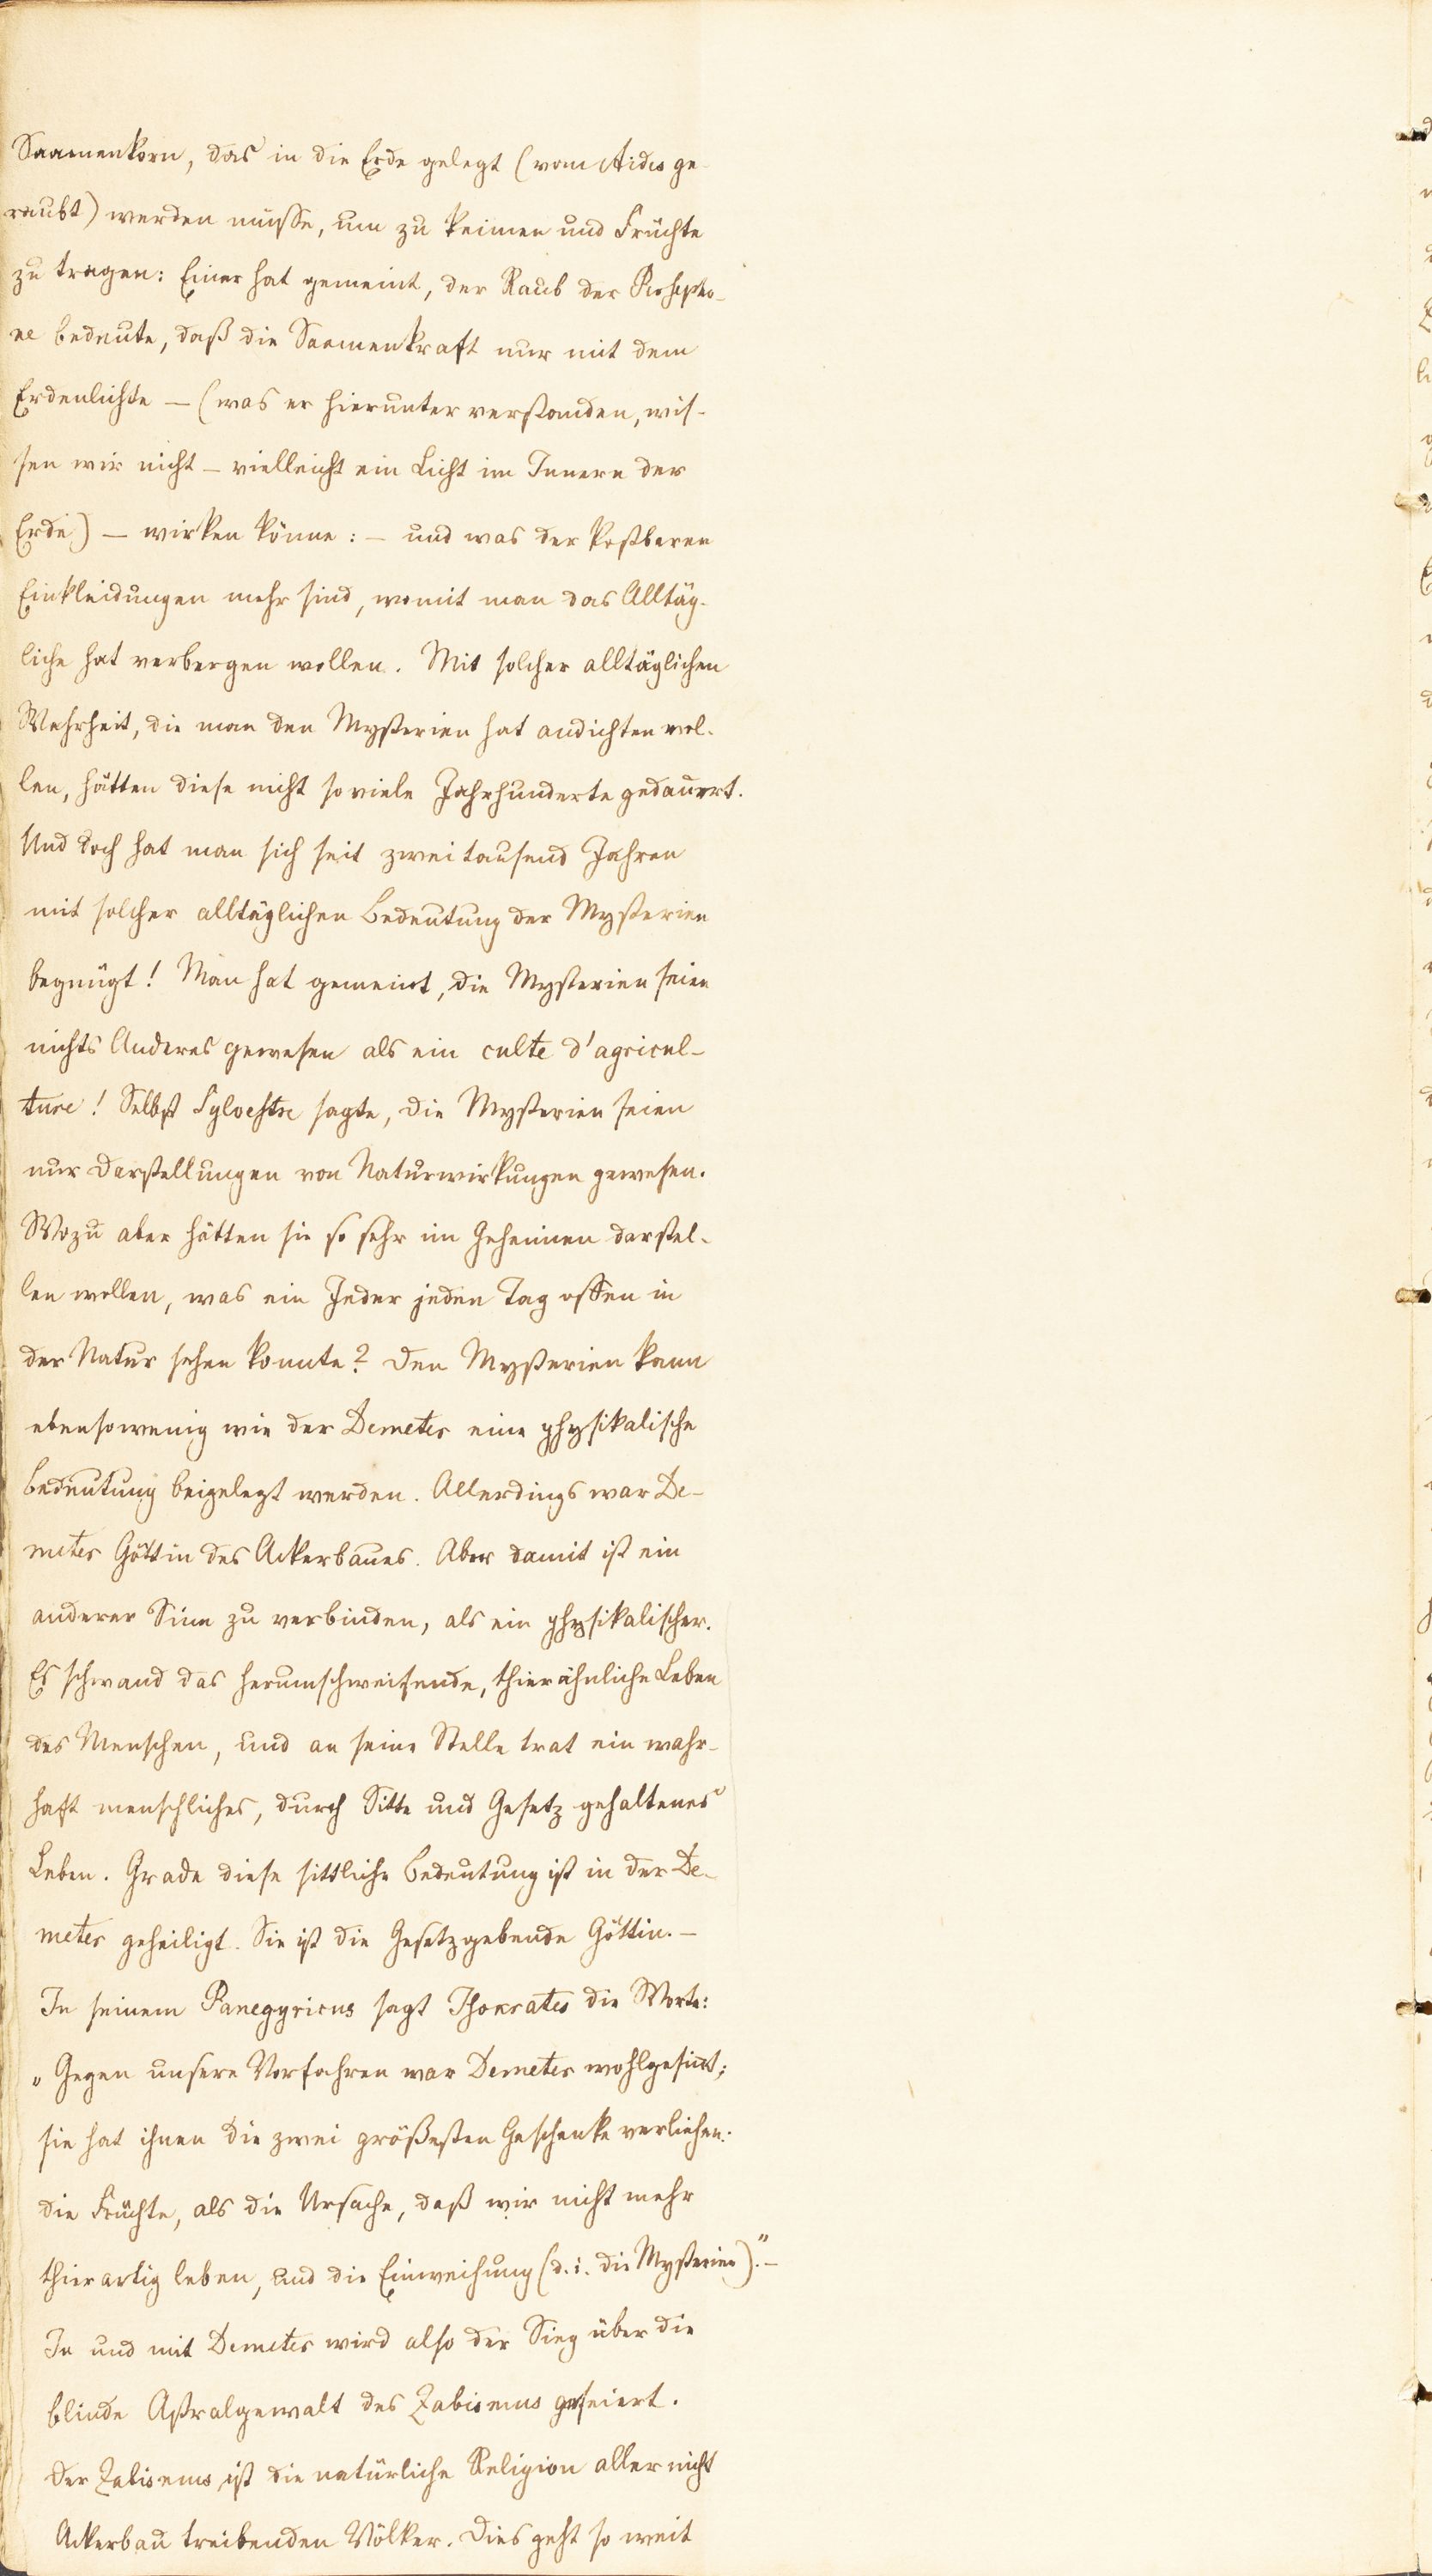 Saamenkorn, das in die Erde gelegt (vom Aides ge-
raubt) werden müsse, um zu keimen und Früchte
zu tragen: Einer hat gemeint, der Raub der Persepho-
ne bedeute, daß die Saamenkraft nur mit dem
Erdenlichte – (was er hierunter verstanden, wis-
sen wir nicht – vielleicht ein Licht im Innern der
Erde) – wirken könne: – und was der kostbaren
Einkleidungen mehr sind, womit man das Alltäg-
liche hat verbergen wollen. Mit solcher alltäglichen
Wahrheit, die man den Mysterien hat andichten wol-
len, hätten diese nicht so viele Jahrhunderte gedauert.
Und doch hat man sich seit zwei tausend Jahren
mit solcher alltäglichen Bedeutung der Mysterien
begnügt! Man hat gemeint, die Mysterien seien
nichts Anderes gewesen als ein culte d'agricul-
ture! Selbst Sylvestre sagte, die Mysterien seien
nur Darstellungen von Naturwirkungen gewesen.
Wozu aber hätten sie so sehr im Geheimen darstel-
len wollen, was ein Jeder jeden Tag offen in
der Natur sehen konnte? Den Mysterien kann
ebensowenig wie der Demeter eine physikalische
Bedeutung beigelegt werden. Allerdings war De-
meter Göttin des Ackerbaues. Aber damit ist ein
anderer Sinn zu verbinden, als ein physikalischer.
Es schwand das herumschweifende, thierähnliche Leben
des Menschen, und an seine Stelle trat ein wahr-
haft menschliches, durch Sitte und Gesetz gehaltenes
Leben. Grade diese sittliche Bedeutung ist in der De-
meter geheiligt. Sie ist die Gesetzgebende Göttin. –
In seinem Panegyricus sagt Isokrates die Worte:
„Gegen unsere Vorfahren war Demeter wohlgesinnt;
sie hat ihnen die zwei größesten Geschenke verliehen:
die Früchte, als die Ursache, daß wir nicht mehr
thierartig leben, und die Einweihung (d. i. die Mysterien)." –
In und mit Demeter wird also der Sieg über die
blinde Astralgewalt des Zabismus gefeiert.
Der Zabismus ist die natürliche Religion aller nicht
Ackerbau treibenden Völker. Dies geht so weit